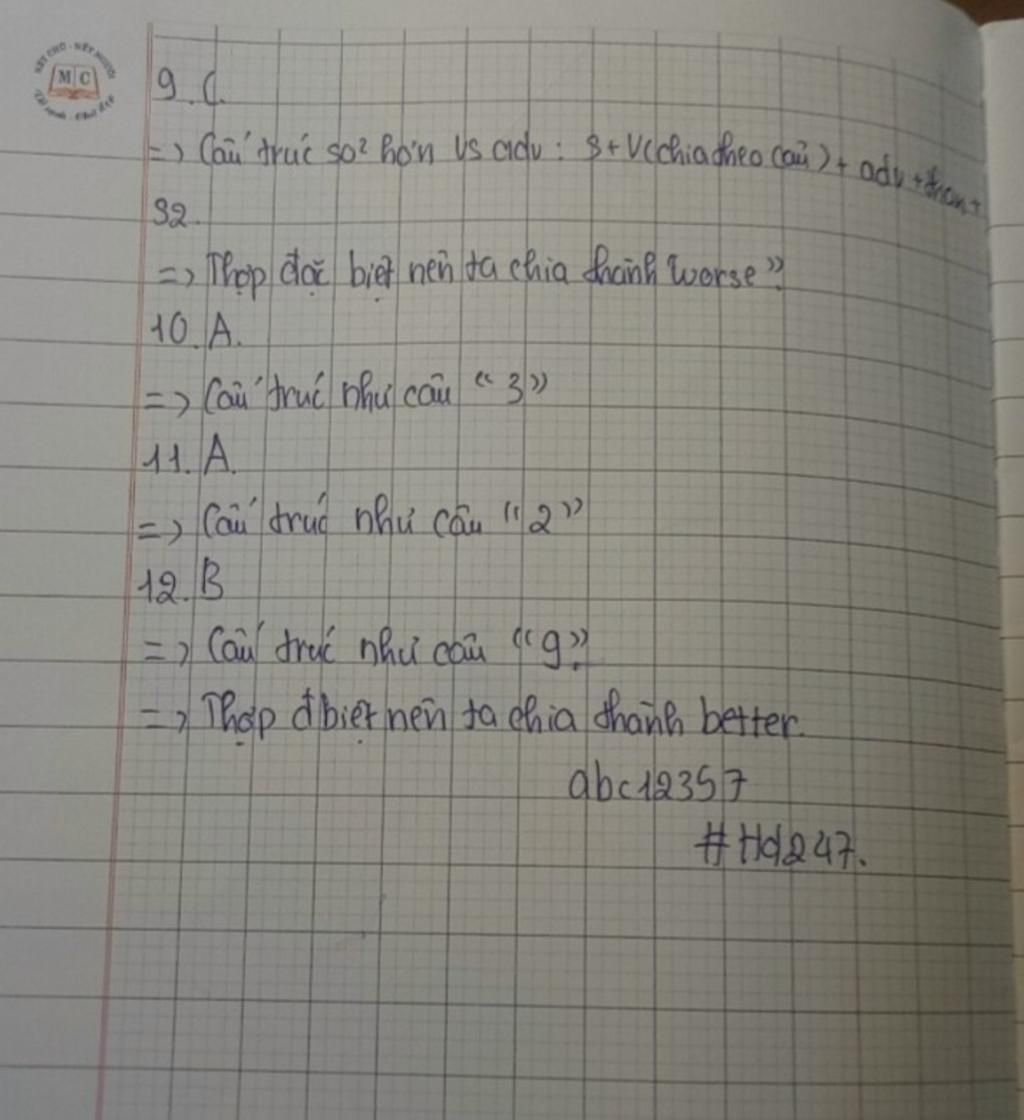 KẾT CHỮ - KẾT NGƯỜI
M C
9. C.
=> Cấu trúc so² hơn vs adv: S + V(chia theo câu) + adv + than +
S2.
=> Thợp đặc biệt nên ta chia thành worse".
10. A.
=> Cấu trúc như câu "3"
11. A.
=> Cấu trúc như câu "2"
12. B
=> Cấu trúc như câu "9".
=> Thợp đbiệt nên ta chia thành better.
abc12357
#Hd247.